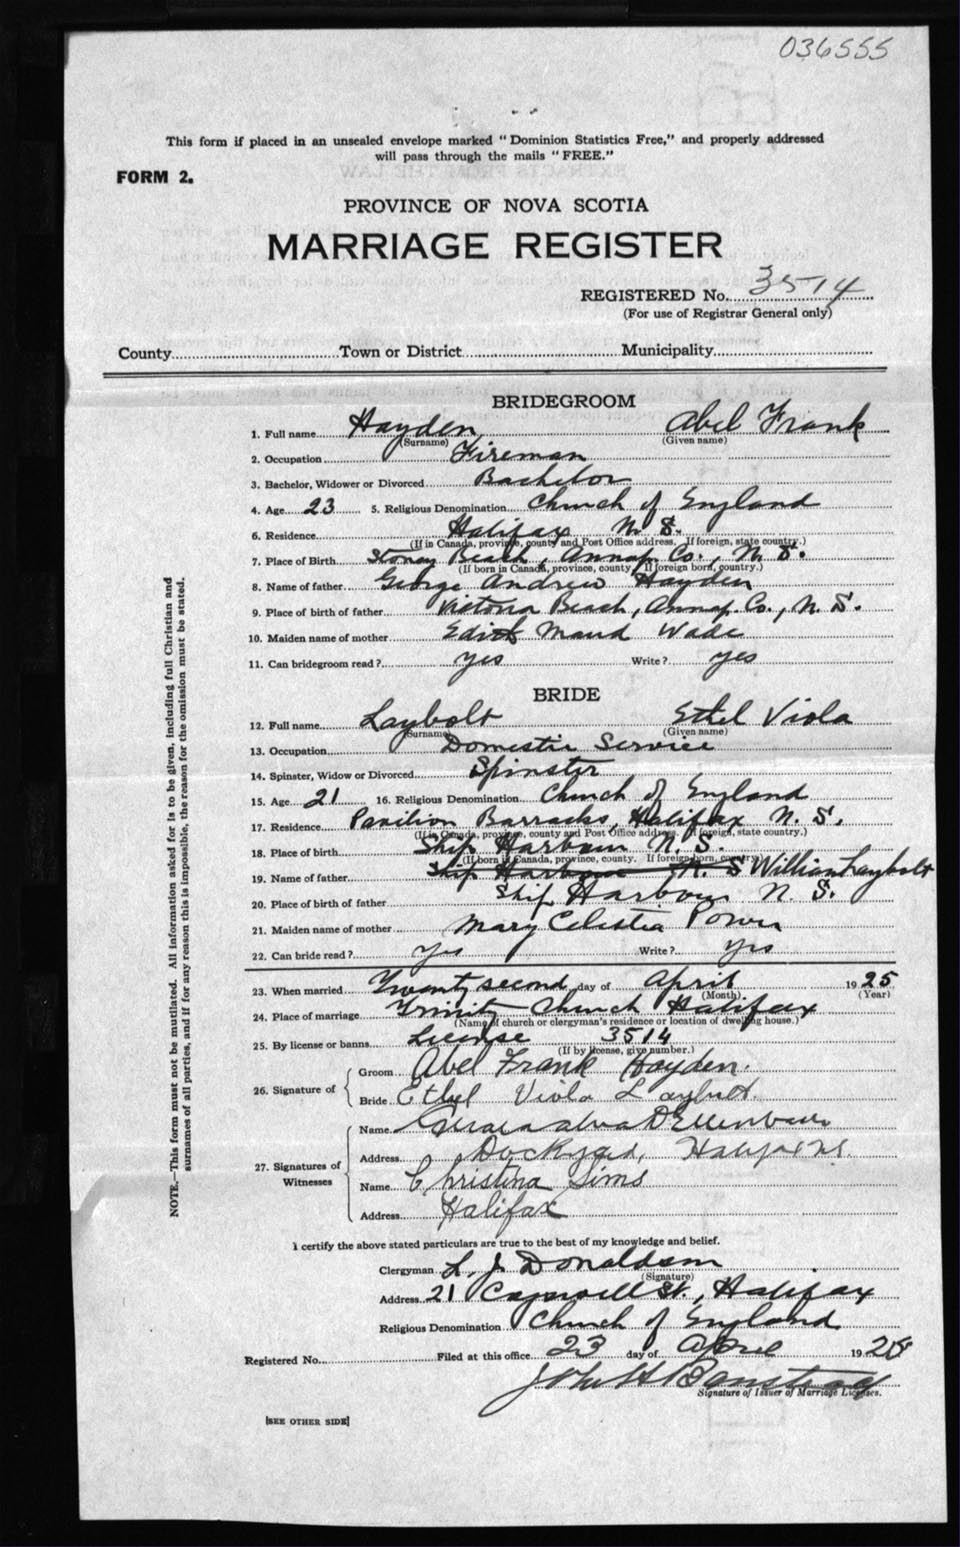 036555
This form if placed in an unsealed envelope marked "Dominion Statistics Free," and properly addressed
will pass through the mails "FREE."
FORM 2.
PROVINCE OF NOVA SCOTIA
MARRIAGE REGISTER
REGISTERED No. 3514
(For use of Registrar General only)
County Town or District Municipality
BRIDEGROOM
1. Full name Hayden Abel Frank
(Surname) (Given name)
2. Occupation Fireman
3. Bachelor, Widower or Divorced Bachelor
4. Age 23 5. Religious Denomination Church of England
6. Residence Halifax N. S.
(If in Canada, province, county and Post Office address. If foreign, state country.)
7. Place of Birth Stoney Beach, Annap. Co., N. S.
(If born in Canada, province, county. If foreign born, country.)
8. Name of father George Andrew Hayden
9. Place of birth of father Victoria Beach, Annap. Co., N. S.
10. Maiden name of mother Edith Maud Wade
11. Can bridegroom read? yes Write? yes
BRIDE
12. Full name Laybolt Ethel Viola
(Surname) (Given name)
13. Occupation Domestic Service
14. Spinster, Widow or Divorced Spinster
15. Age 21 16. Religious Denomination Church of England
17. Residence Pavilion Barracks, Halifax N. S.
(If in Canada, province, county and Post Office address. If foreign, state country.)
18. Place of birth Ship Harbour N. S.
(If born in Canada, province, county. If foreign born, country)
19. Name of father Ship Harbour N. S William Laybolt
20. Place of birth of father Ship Harbour N. S.
21. Maiden name of mother Mary Celestia Power
22. Can bride read? Yes Write? yes
23. When married Twenty second day of April 1925
(Month) (Year)
24. Place of marriage Trinity Church Halifax
(Name of church or clergyman's residence or location of dwelling house.)
25. By license or banns License 3514
(If by license, give number.)
26. Signature of Groom Abel Frank Hayden.
Bride Ethel Viola Laybolt.
27. Signatures of Witnesses Name
Address Dockyard, Halifax NS
Name Christina Sims
Address Halifax
I certify the above stated particulars are true to the best of my knowledge and belief.
Clergyman L. J. Donaldson
(Signature)
Address 21 St., Halifax
Religious Denomination Church of England
Registered No. Filed at this office 23 day of April 1925
John H
Signature of Issuer of Marriage Licenses.
[SEE OTHER SIDE]
NOTE.—This form must not be mutilated. All information asked for is to be given, including full Christian and
surnames of all parties, and if for any reason this is impossible, the reason for the omission must be stated.